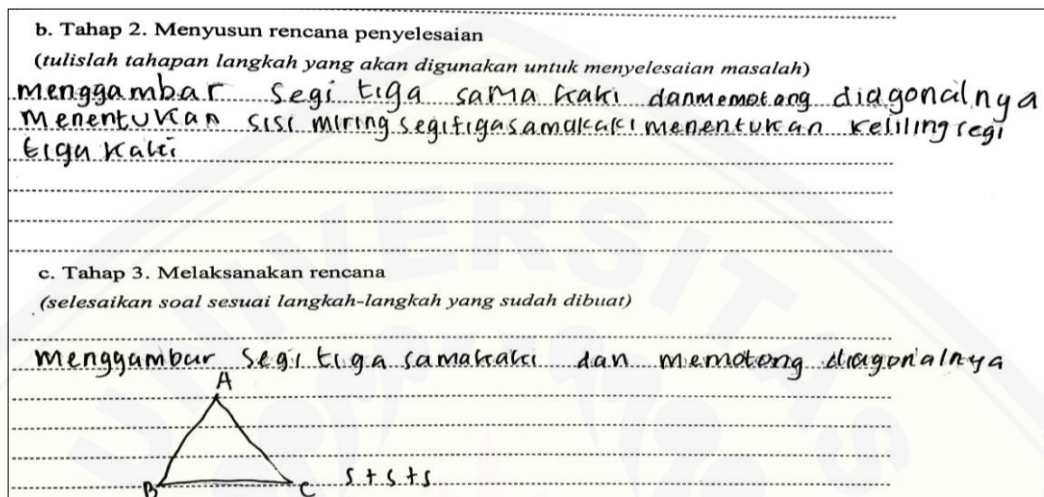 b. Tahap 2. Menyusun rencana penyelesaian
(tulislah tahapan langkah yang akan digunakan untuk menyelesaian masalah)
menggambar segi tiga sama kaki danmemotang diagonalnya
Menentukan sisi miring segitigasamakaki menentukan keliling segi
tiga kaki
c. Tahap 3. Melaksanakan rencana
(selesaikan soal sesuai langkah-langkah yang sudah dibuat)
menggambar segi tiga samakaki dan memotong diagonalnya
A
B C s + s + s
UNIVERSITAS